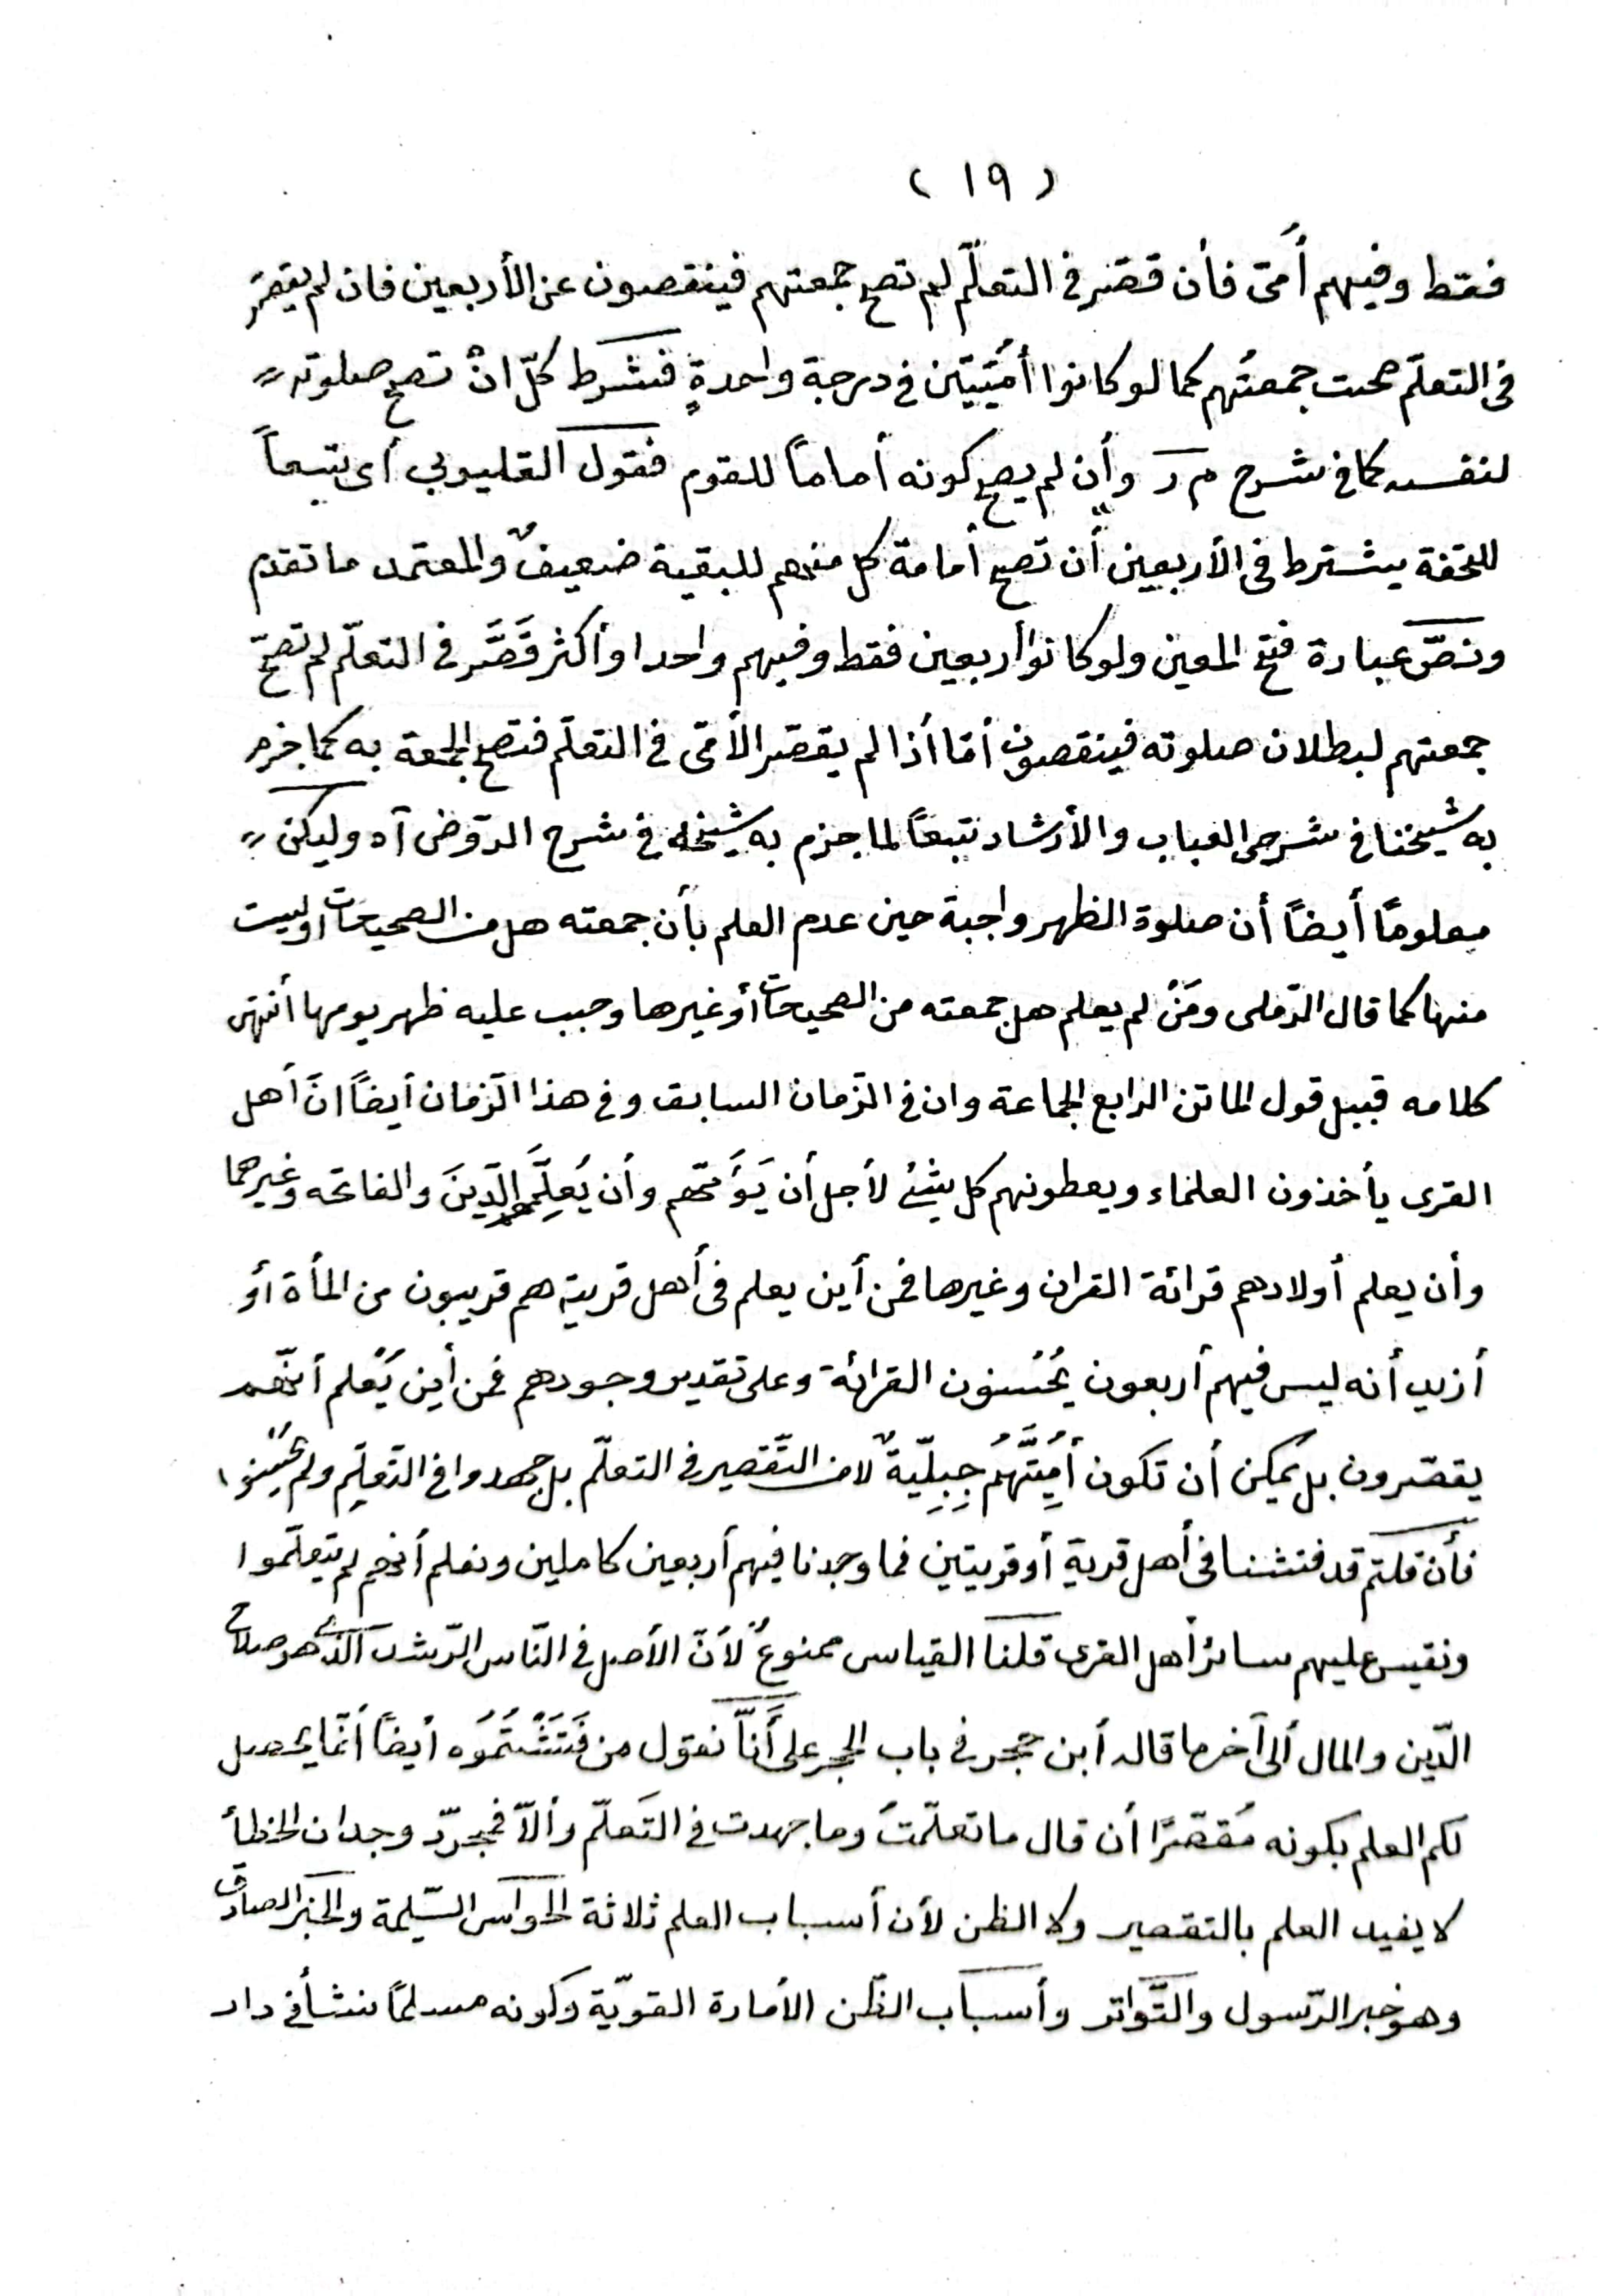 ( ١٩ )
فقط وفيهم أُمّى فأن قصّر فى التعلّم لم تصح جمعتهم فينقصون عن الأربعين فان لم يقصّر
فى التعلّم صحت جمعتُهم كما لو كانوا أُمّيّيّن فى درجة واحدةٍ فشرط كلّ انْ تصح صلوته
لنفسه كما فى شرح م ر وأن لم يصح كونه أماماً للقوم فقول القليوبى أى تبعاً
للتحفة يشترط فى الأربعين أن تصح أمامة كل منهم للبقية ضعيفٌ والمعتمد ما تقدم
ونصّ عبارة فتح المعين ولو كانوا أربعين فقط وفيهم واحد او أكثر قَصَّر فى التعلّم لم تصحّ
جمعتهم لبطلان صلوته فينقصون أمّا أذا لم يقصّر الأمّى فى التعلّم فتصح الجمعة به كما جزم
به شيخنا فى شرحى العباب والأرشاد تبعاً لما جزم به شيخه فى شرح الرّوض آه وليكن
معلومًا أيضاً أن صلوة الظهر واجبة حين عدم العلم بأن جمعته هل من الصحيحات أو ليست
منها كما قال الرّملى ومَنْ لم يعلم هل جمعته من الصحيحات أو غيرها وجبب عليه ظهر يومها أنتهى
كلامه قبيل قول الماتن الرابع الجماعة وان فى الزّمان السابق وفى هذا الزّمان أيضاً انّ أهل
القرى يأخذون العلماء ويعطونهم كل شئ لأجل أن يَؤُمّهم وأن يُعلِّمَهم الدّينَ والفاتحه وغيرهما
وأن يعلم أولادهم قرائة القران وغيرها فمن أين يعلم فى أهل قرية هم قريبون من المأة أو
أزيد أنه ليس فيهم أربعون يُحْسنون القرائة وعلى تقدير وجودهم فمن أين يُعلم أنّهم
يقصّرون بل يمكن أن تكون أُمّيَّتُهُم جِبِلِّيّةٌ لا من التّقصير فى التعلّم بل جهدوا فى التّعلِّم ولم يُحْسِنوا
فأن قلتم قد فتشنا فى أهل قرية أو قريتين فما وجدنا فيهم أربعين كاملين ونعلم أنهم لم يتعلّموا
ونقيس عليهم سائر أهل القرى قلنا القياس ممنوعٌ لأنّ الأصل فى النّاس الرّشد الذى هو صلاح
الدّين والمال ألى آخر ما قاله أبن حجر فى باب الحجر على أنّا نقول من فَتَشْتُمُوه أيضاً أنّما يحصل
لكم العلم بكونه مُقصّرًا أن قال ما تعلّمتُ وما جهدت فى التّعلّم وألاّ فمجرّد وجدان الخطأ
لا يفيد العلم بالتقصير ولا الظن لأن أسباب العلم ثلاثة الحواس السّليمة والخبر الصادق
وهو خبر الرّسول والتّواتر وأسباب الظّن الأمارة القويّة وكونه مسلمًا نشأ فى دار